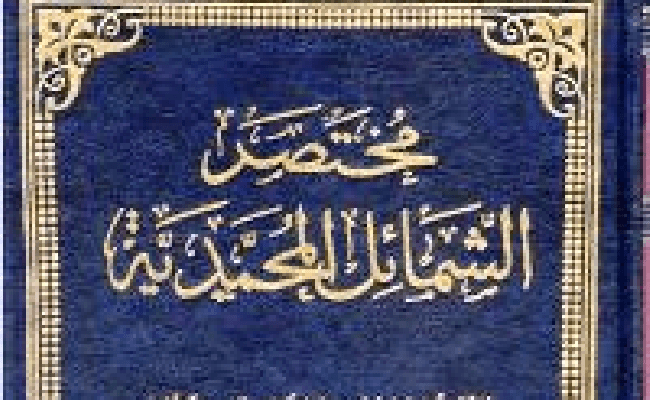 مُخْتَصَرُ
الشَّمَائِلِ المُحَمَّدِيَّةِ